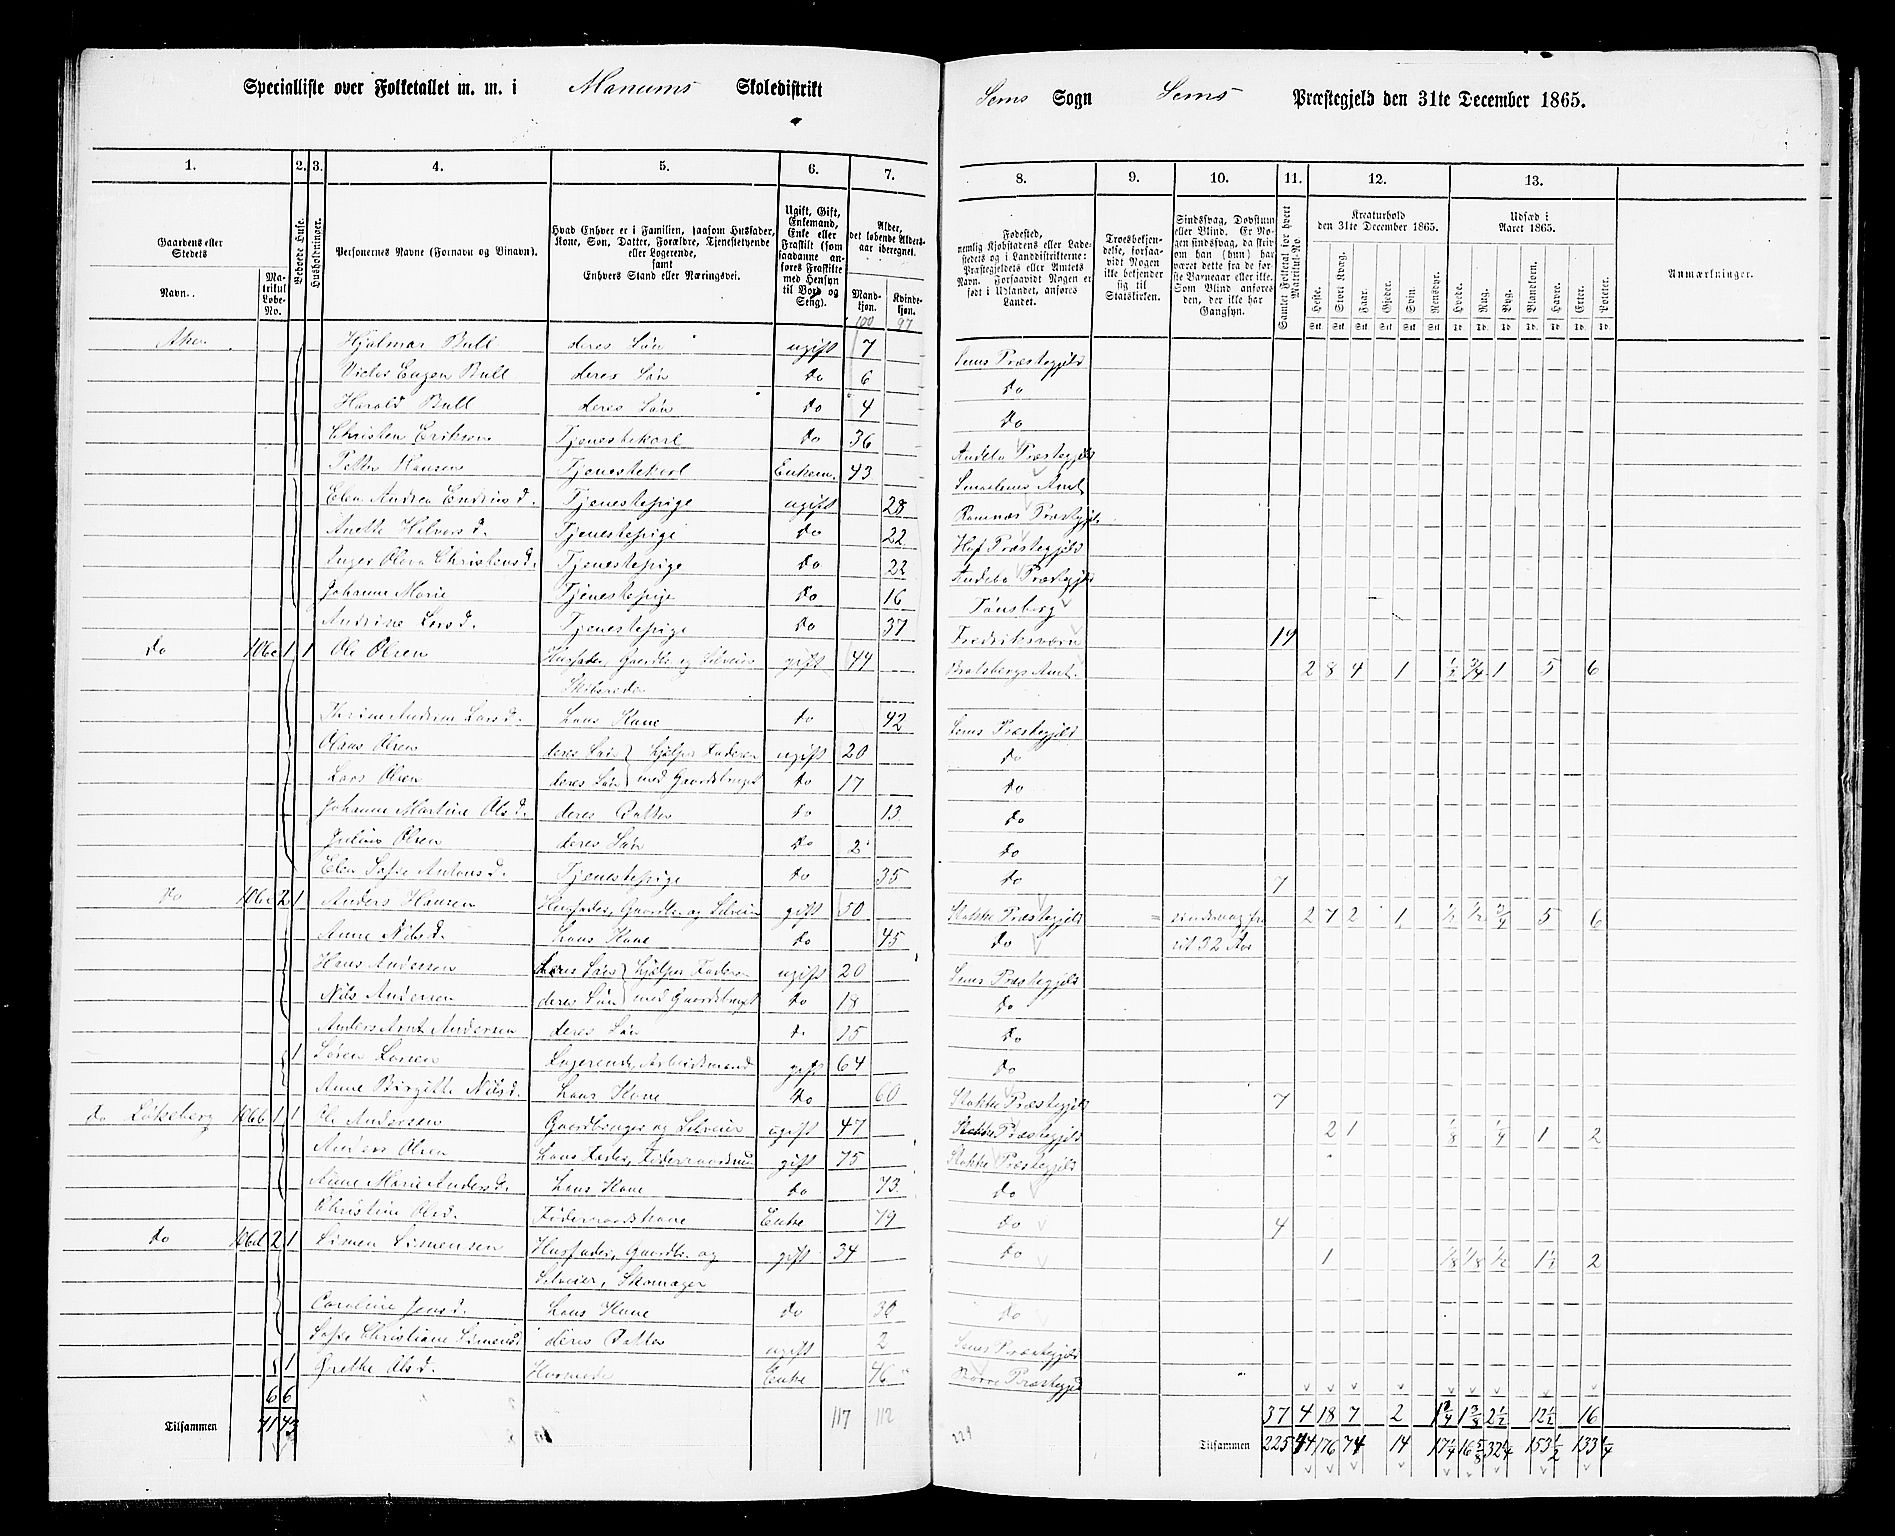 Specialliste over Folketallet m. m. i Manums Skoledistrikt
Sems Sogn Sems Præstegjeld den 31te December 1865.
1. 2. 3. 4. 5. 6. 7. 8. 9. 10. 11. 12. 13.
Gaardens eller Stedets Navn.
Matrikul Løbe-No.
Beboede Huse.
Husholdninger.
Personernes Navne (Fornavn og Tilnavn).
Hvad Enhver er i Familien, saasom Husfader, Kone, Søn, Datter, Forældre, Tjenestetyende eller Logerende, samt Enhvers Stand eller Næringsvei.
Ugift, Gift, Enkemand, Enke eller Fraskilt (som saadanne anføres Fraskilte med Hensyn til Bord og Seng).
Alder, det løbende Aldersaar iberegnet.
Mandkjøn. Kvindekjøn.
Fødested, nemlig Kjøbstadens eller Ladestedets og i Landdistrikterne: Præstegjeldets eller Amtets Navn. Forsaavidt Nogen er født i Udlandet, anføres Landet.
Troesbekjendelse, forsaavidt Nogen ikke bekjender sig til Statskirken.
Sindssvag, Døvstum eller Blind. Er Nogen sindssvag, da skrives om han (hun) har været dette fra de første Barneaar eller ikke. Som Blind anføres den, der ikke har Gangsyn.
Samlet Folketal for hvert Matrikul-No.
Kreaturhold den 31te December 1865.
Heste. Stort Kvæg. Faar. Gjeder. Svin. Rensdyr.
Udsæd i Aaret 1865.
Hvede. Rug. Byg. Blandkorn. Havre. Erter. Poteter.
Anmærkninger.
100 97
Hjalmar Bull deres Søn ugift 7 Sems Præstegjeld
Victor Eugen Bull deres Søn Do 6 Do
Harald Bull deres Søn Do 4 Do
Christen Eriksen Tjenestekarl Do 36 Andebo Præstegjeld
Petter Hansen Tjenestekarl Enkem. 43 Smaalenes Amt
Elen Andrea Endrits d. Tjenestepige ugift 28 Ramnæs Præstegjeld
Anette Halvors d. Tjenestepige Do 22 Hof Præstegjeld
Inger Olava Christensd. Tjenestepige Do 22 Andebo Præstegjeld
Johanne Marie Tjenestepige Do 16 Tønsberg
Andrine Lars d. Tjenestepige Do 37 Fredriksværn 14
Do 106c 1 1 Ole Olsen Husfader, Gaardbr. og Selveier gift 44 Bratsbergs Amt. 2 8 4 1 1/2 3/4 1 5 6
Skibsreder
Andrea Lars d. hans Kone Do 42 Sems Præstegjeld
Claus Olsen deres Søn hjælper Faderen ugift 20 Do
Lars Olsen deres Søn med Gaardsbruget Do 17 Do
Johanne Martine Ols d. deres Datter Do 13 Do
Julius Olsen deres Søn Do 2 Do
Elen Sofie Antons d. Tjenestepige Do 35 Do 7
Do 2 1 Anders Hansen Husfader, Gaardbr. og Selveier gift 50 Stokke Præstegjeld 2 7 2 1 5 6
Anne Nilsd. hans Kone Do 45 Do sit 32 Aar
Hans Andersen deres Søn hjælper Faderen ugift 20 Sems Præstegjeld
Nils Andersen deres Søn med Gaardsbruget Do 18 Do
Anders Arnt Andersen deres Søn Do 15 Do
1 Søren Larsen Logerende, Arbeidsmand gift 64 Do
Anne Birgitte Nilsd. hans Kone Do 60 Stokke Præstegjeld 7
Do Løkeberg 106b 1 1 Ole Andersen Gaardbruger og Selveier ugift 47 Stokke Præstegjeld 2 1 1/8 1/4 1 2
Anders Olsen hans Fader, Føderaadsmand gift 75 Stokke Præstegjeld
Anne Marie Andersd. hans Kone Do 73 Do
Christine Olsd. Føderaadskone Enke 79 Do 4
Do 106d 2 1 Simen Simensen Husfader, Gaardbr. og gift 34 Do 1 1/8 1/8 1/2 1 1/2 2
Selveier, Skomager
Caroline Jens d. hans Kone Do 30 Do
Sofie Christiane Simensd. deres Datter ugift 2 Sems Præstegjeld
1 Grethe Ols d. Enke 46 Borre Præstegjeld
6 6
Tilsammen 41 43 117 112
229
37 4 18 7 2 1 3/8 2 1/2 12 1/2 16
Tilsammen 225 44 176 74 14 17 1/4 16 5/8 32 1/4 153 1/2 133 1/4